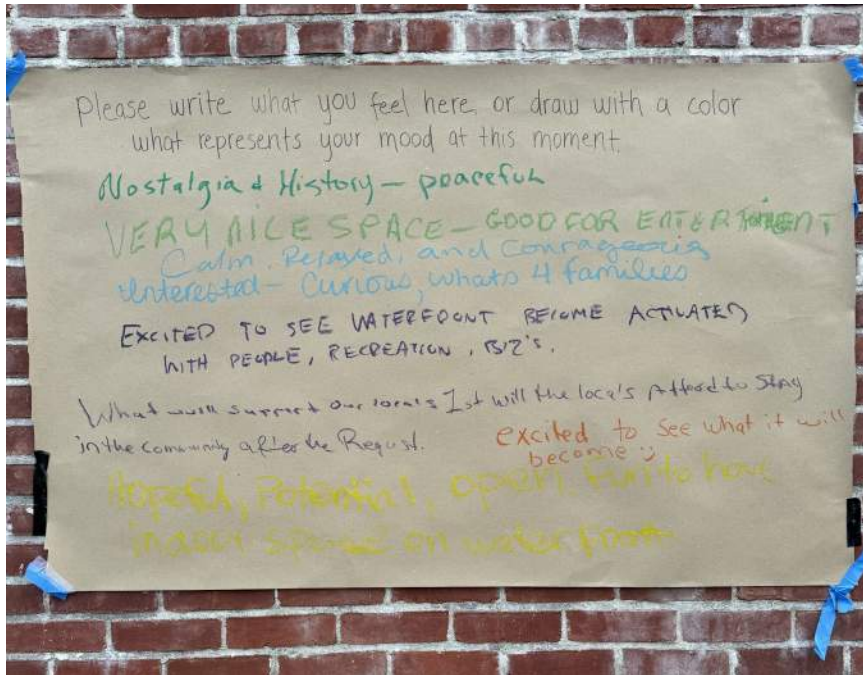 please write what you feel here, or draw with a color
what represents your mood at this moment.
Nostalgia & History — peaceful
VERY NICE SPACE — GOOD FOR ENTERTAINMENT
Calm, Relaxed, and Courageous
Interested — Curious, whats 4 families
EXCITED TO SEE WATERFRONT BECOME ACTIVATED
WITH PEOPLE, RECREATION, BIZ'S.
What will support our locals 1st will the loca's Afford to Stay
in the community after the
excited to see what it will
become :)
Hopeful, Potential, open, fun to have
indoor space on waterfront